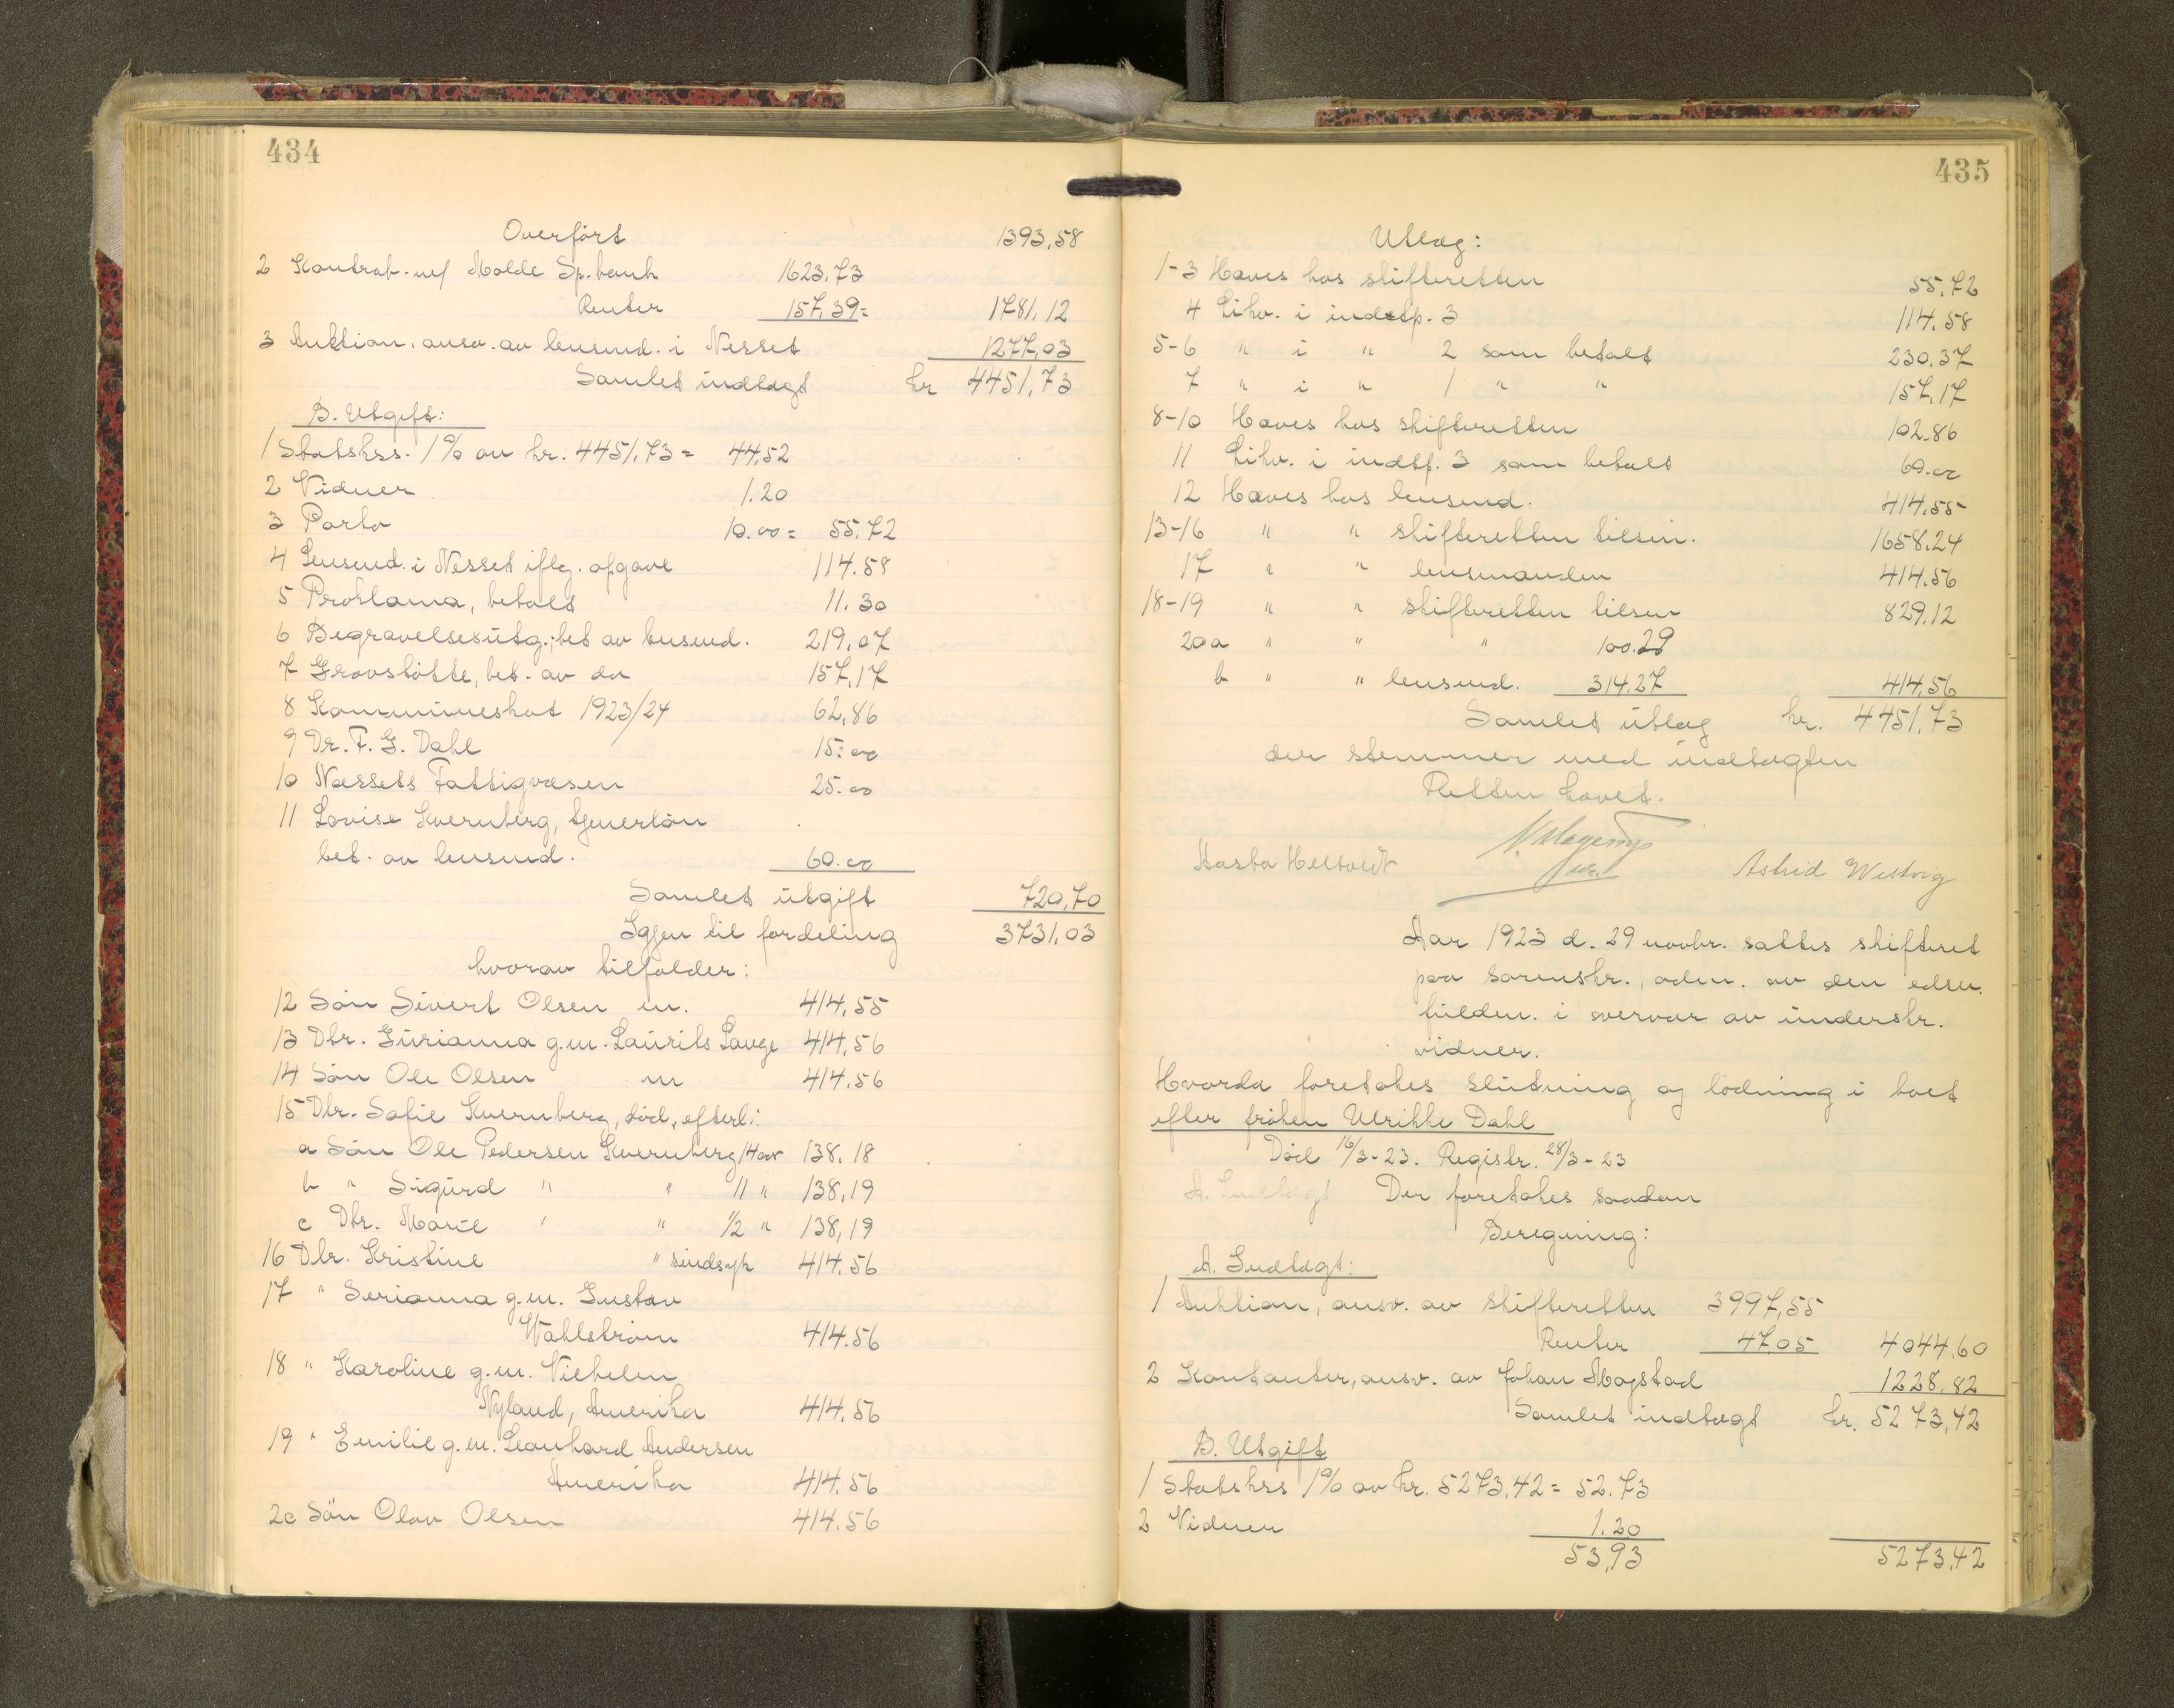 434
Overført 1393,58
2 Kontrab. m/ Molde Sp.bank 1623.73
Renter 157,39 = 1781,12
3 Auktion, ansv. av lensmd. i Nesset 1277,03
Samlet indtægt kr 4451,73
B. Utgift:
1 Statskss. 1% av kr. 4451,73 = 44,52
2 Vidner 1.20
3 Porto 10.00 = 55,72
4 Lensmd. i Nesset iflg. opgave 114.58
5 Proklama, betalt 11.30
6 Begravelsesutg.; bet av lensmd. 219,07
7 Gravstøtte, bet. av do 157,17
8 Kommuneskat 1923/24 62,86
9 Dr. F. G. Dahl 15.00
10 Næssets Fattigvæsen 25.00
11 Lovise Kvernberg, tjenerløn
bet. av lensmd. 60.00
Samlet utgift 720,70
Igjen til fordeling 3731,03
hvorav tilfalder:
12 Søn Sivert Olsen m. 414,55
13 Dtr. Gurianna g.m. Laurits Lange 414,56
14 Søn Ole Olsen m 414,56
15 Dtr. Sofie Kvernberg, død, efterl.:
a Søn Ole Pedersen Kvernberg 14 aar 138,18
b " Sigurd " " 11 " 138,19
c Dtr. Marie " " 1/2 " 138,19
16 Dtr. Kristine " sindsyk 414.56
17 " Serianna g.m. Gustav
Wahlstrøm 414.56
18 " Karoline g.m. Vilhelm
Nyland, Amerika 414.56
19 " Emilie g.m. Leonhard Andersen
Amerika 414.56
20 Søn Olav Olsen 414.56
435
Utlæg:
1-3 Haves hos skifteretten 55,72
4 Likv. i indtp. 3 114.58
5-6 " i " 2 som betalt 230.37
7 " i " 1 " " 157,17
8-10 Haves hos skifteretten 102.86
11 Likv. i indtp. 3 som betalt 60.00
12 Haves hos lensmd. 414.55
13-16 " " skifteretten tilsm. 1658.24
17 " " lensmanden 414.56
18-19 " " skifteretten tilsm 829,12
20a " " " 100.29
b " " lensmd. 314,27 414,56
Samlet utlæg kr. 4451,73
der stemmer med indtægten
Retten hævet.
Aasta Astrid Westvig
Aar 1923 d. 29 novbr. sattes skifteret
paa sorenskr., adm. av den edsv.
fuldm. i overvær av underskr.
vidner.
Hvorda foretokes slutning og lodning i boet
efter frøken Ulrikke Dahl
Død 16/3-23. Registr. 28/3-23
A. Indtægt Der foretokes saadan
Beregning:
A. Indtægt:
1 Auktion, ansv. av skifteretten 3997,55
Renter 47.05 4044,60
2 Kontanter, ansv. av Johan Mogstad 1228,82
Samlet indtægt kr. 5273,42
B. Utgift
1 Statskss 1% av kr. 5273,42 = 52.73
2 Vidner 1.20
53,93 5273,42